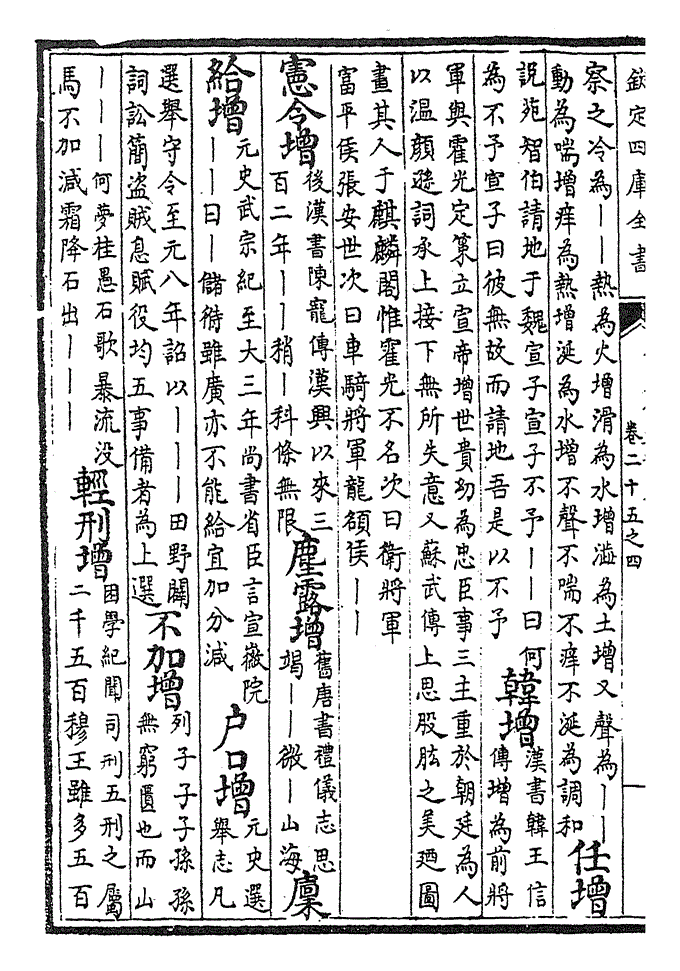 欽定四庫全書 卷二十五之四 一
察之冷為——熱為火增滑為水增溢為土增又聲為——
動為喘增痒為熱增涎為水增不聲不喘不痒不涎為調和
任增
說苑智伯請地于魏宣子宣子不予——曰何
為不予宣子曰彼無故而請地吾是以不予
韓增
漢書韓王信
傳增為前將
軍與霍光定策立宣帝增世貴幼為忠臣事三主重於朝廷為人
以温顔遜詞承上接下無所失意又蘇武傳上思股肱之美廼圖
畫其人于麒麟閣惟霍光不名次曰衛將軍
富平侯張安世次曰車騎將軍龍頟侯——
憲令增
後漢書陳寵傳漢興以來三
百二年——稍—科條無限
塵露增
舊唐書禮儀志思
竭——微—山海
廩
給增
元史武宗紀至大三年尚書省臣言宣徽院
——曰—儲偫雖廣亦不能給宜加分減
户口增
元史選
舉志凡
選舉守令至元八年詔以———田野闢
詞訟簡盜賊息賦役均五事備者為上選
不加增
列子子子孫孫
無窮匱也而山
———何夢桂愚石歌暴流没
馬不加減霜降石出———
輕刑增
困學紀聞司刑五刑之屬
二千五百穆王雖多五百